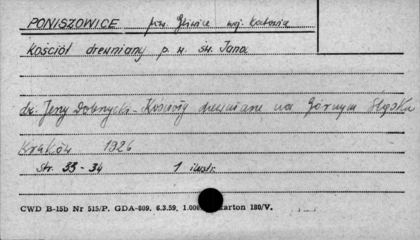 PONISZOWICE pow. Gliwice woj. Katowice
Kościół drewniany p. w. św. Jana
dr. Jerzy Dobrzycki - Kościoły drewniane na Górnym Śląsku
Kraków 1926
str. 33 - 34 1 ilustr.
CWD B-15b Nr 515/P. GDA-809. 6.3.59, 1.000 karton 180/V.